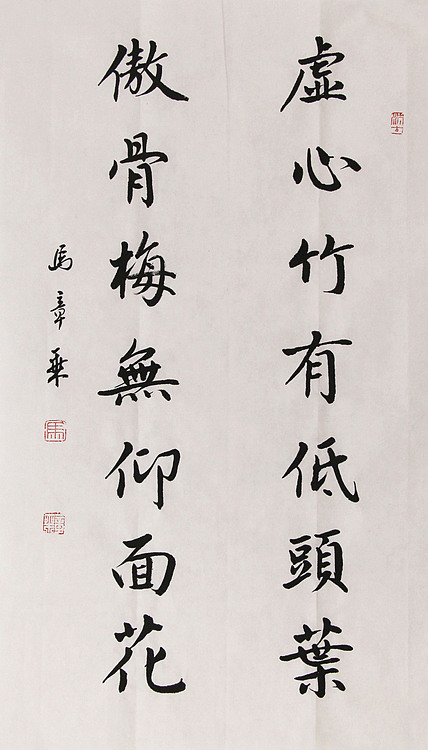 虛心竹有低頭葉
傲骨梅無仰面花
馬章乗